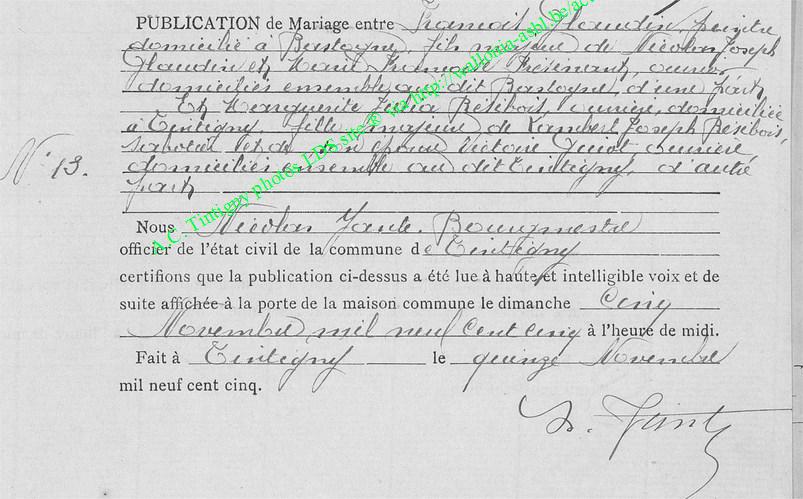 PUBLICATION de Mariage entre François Glaudin, peintre
domicilié à Bastogne, fils majeur de Nicolas Joseph
Glaudin et Marie
domiciliés ensemble au dit Bastogne, d'une part,
Et Marguerite Résibois, ouvrière, domiciliée
à Tintigny, fille majeure de Lambert Joseph Résibois,
et de son épouse Victoire ouvrière,
domiciliés ensemble au dit Tintigny, d'autre
part
N° 13.
Nous Nicolas Bourgmestre
officier de l'état civil de la commune de Tintigny
certifions que la publication ci-dessus a été lue à haute et intelligible voix et de
suite affichée à la porte de la maison commune le dimanche Cinq
Novembre mil neuf cent cinq à l'heure de midi.
Fait à Tintigny le quinze Novembre
mil neuf cent cinq.
A.C. Tintigny photos LDS site ® via http://wallonia-asbl.be/ac